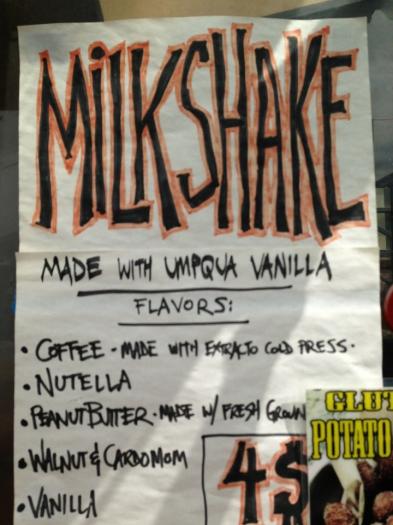 MiLKSHAKE
MADE WITH UMPQUA VANILLA
FLAVORS:
• COFFEE - MADE WITH EXTRACTO COLD PRESS.
• NUTELLA
• PEANUT BUTTER - MADE W/ FRESH GROUN
• WALNUT & CARDOMOM
• VANILLA
4$
GLUT
POTATO